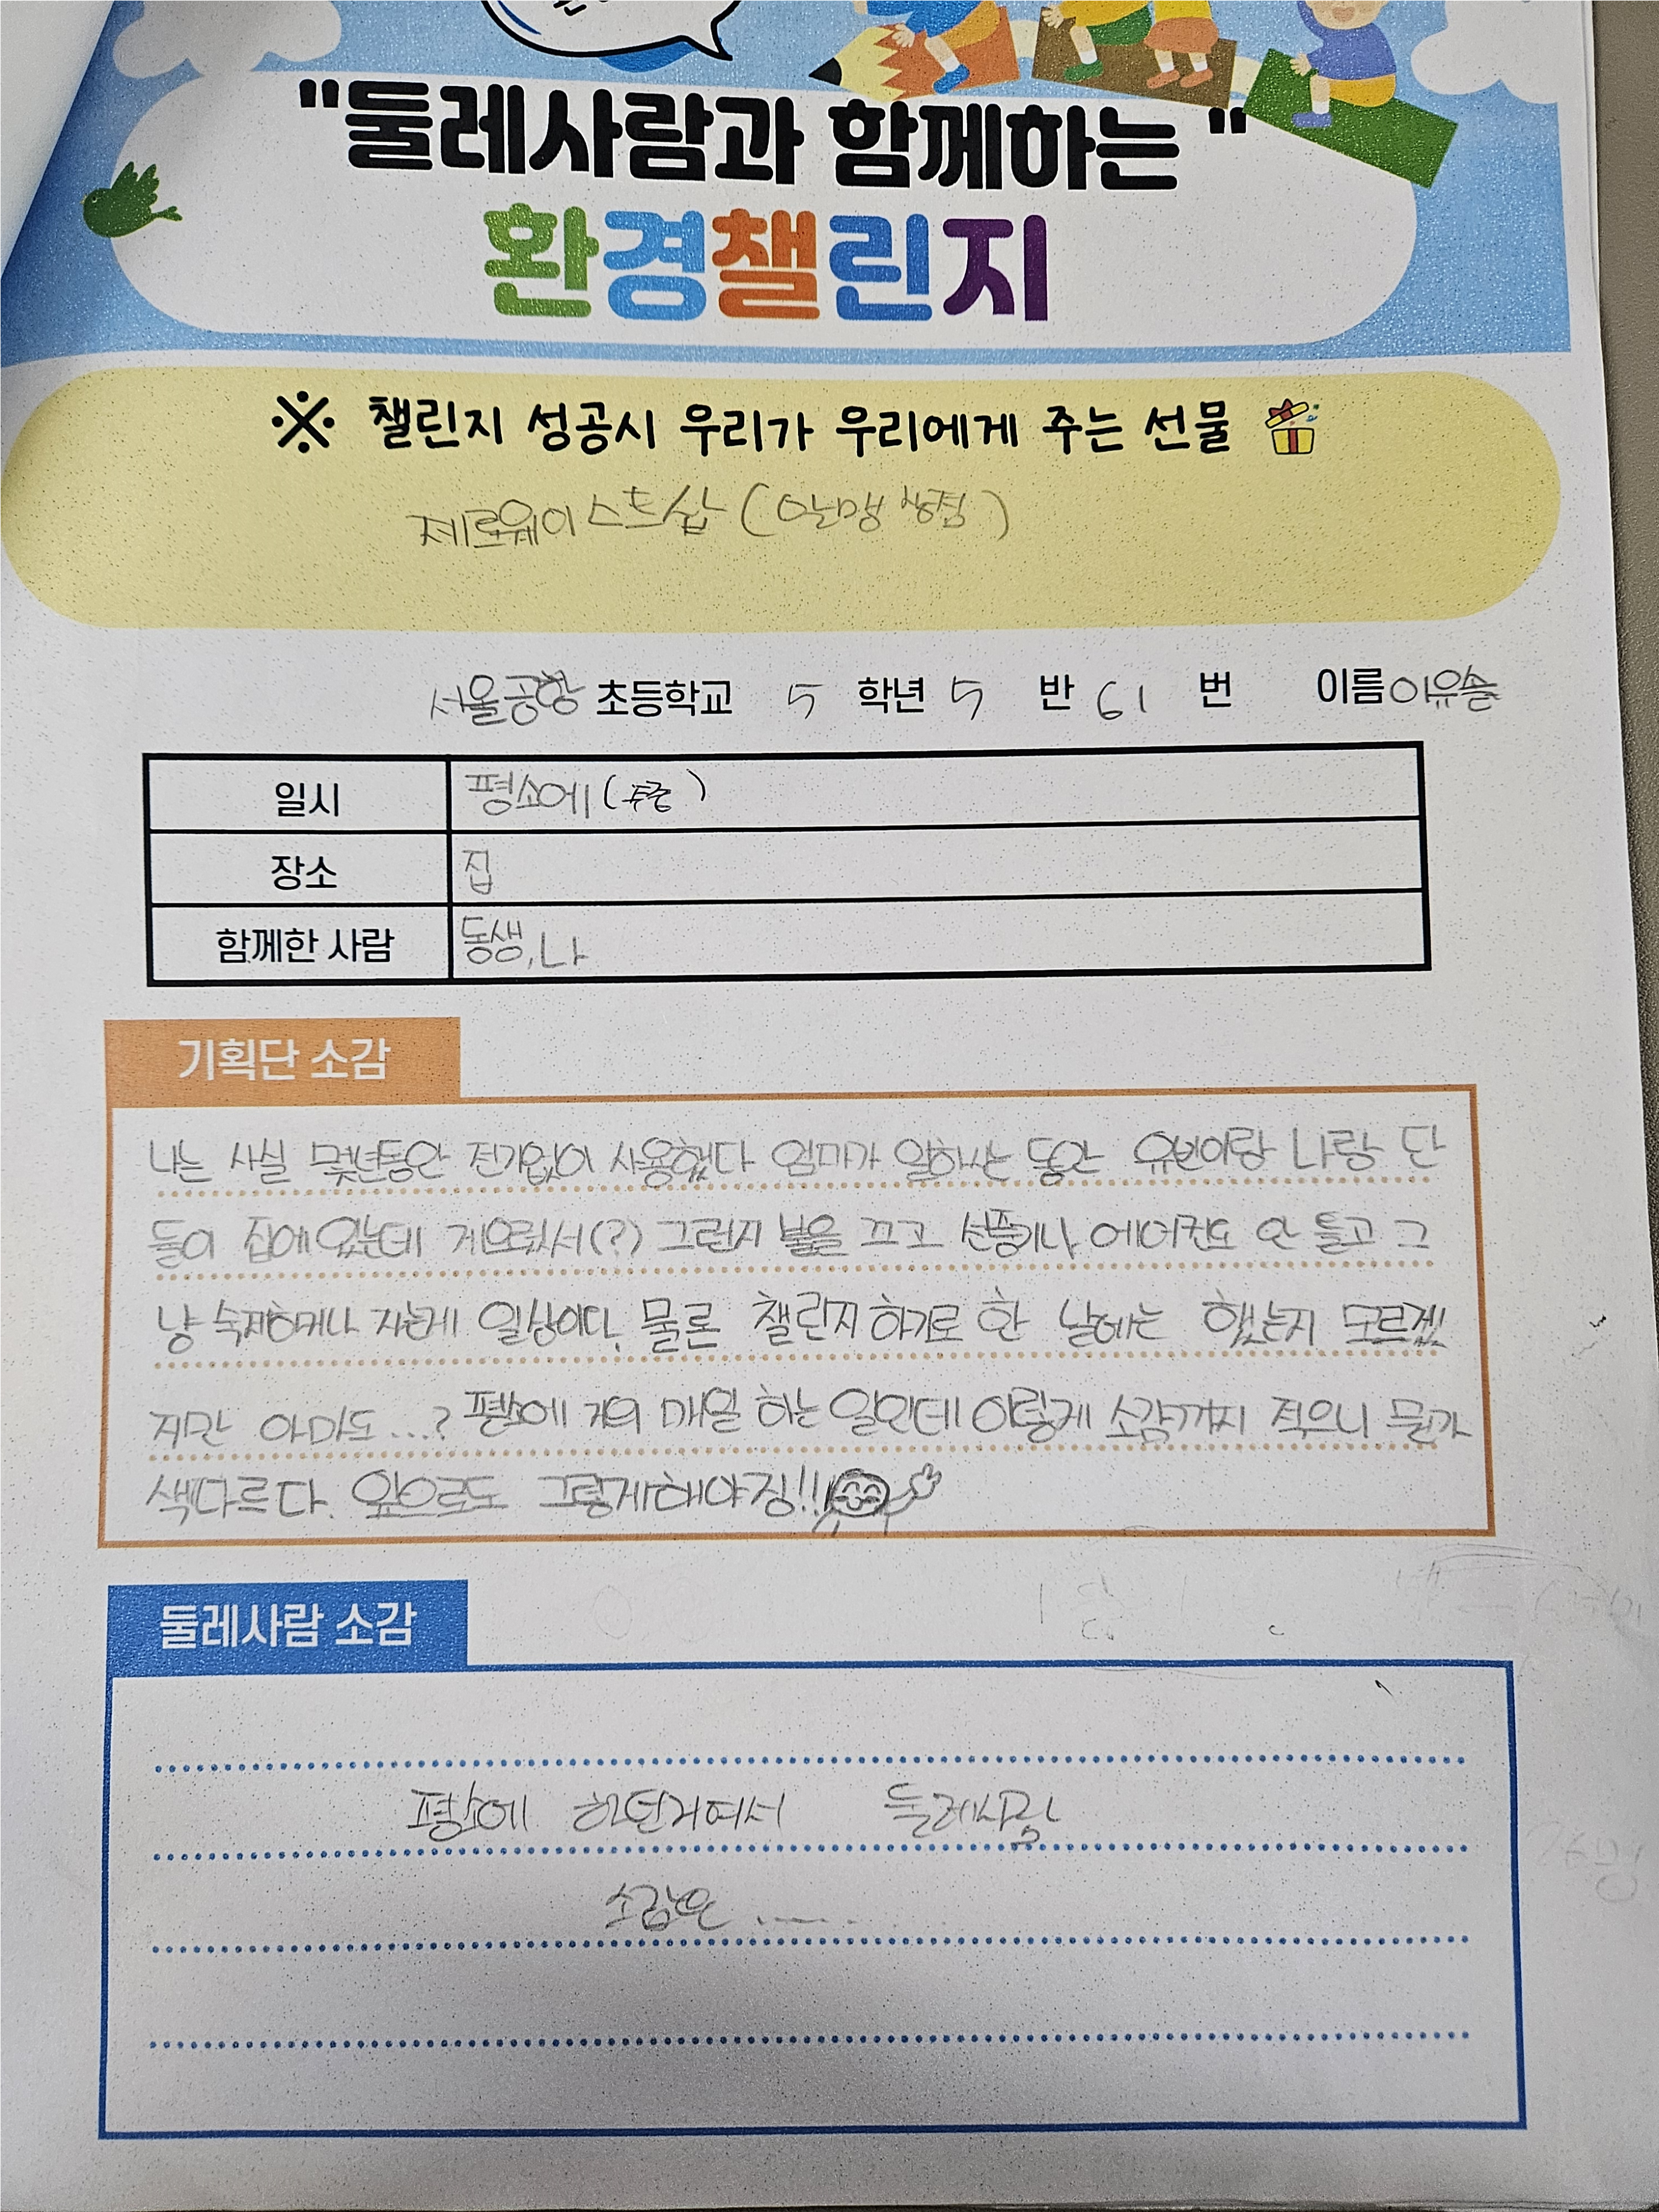 "둘레사람과 함께하는"
환경챌린지
※ 챌린지 성공시 우리가 우리에게 주는 선물
제로웨이스트샵 (알맹상점)
서울공항 초등학교 5 학년 5 반 19 번 이름 이유솔
일시 평소에 (
장소 집
함께한 사람 동생, 나
기획단 소감
나는 사실 몇년동안 전기없이 사용했다 엄마가 일하시는 동안 유빈이랑 나랑 단
둘이 집에 있는데 게을러서(?) 그런지 불을 끄고 선풍기나 에어컨도 안 틀고 그
냥 숙제하거나 자는게 일상이다. 물론 챌린지 하기로 한 날에는 했는지 모르겠
지만 아마도...? 평소에 거의 매일 하는 일인데 이렇게 소감까지 적으니 뭔가
색다르다. 앞으로도 그렇게해야징!!
둘레사람 소감
평소에 하던거여서 둘레사람
소감은 ......